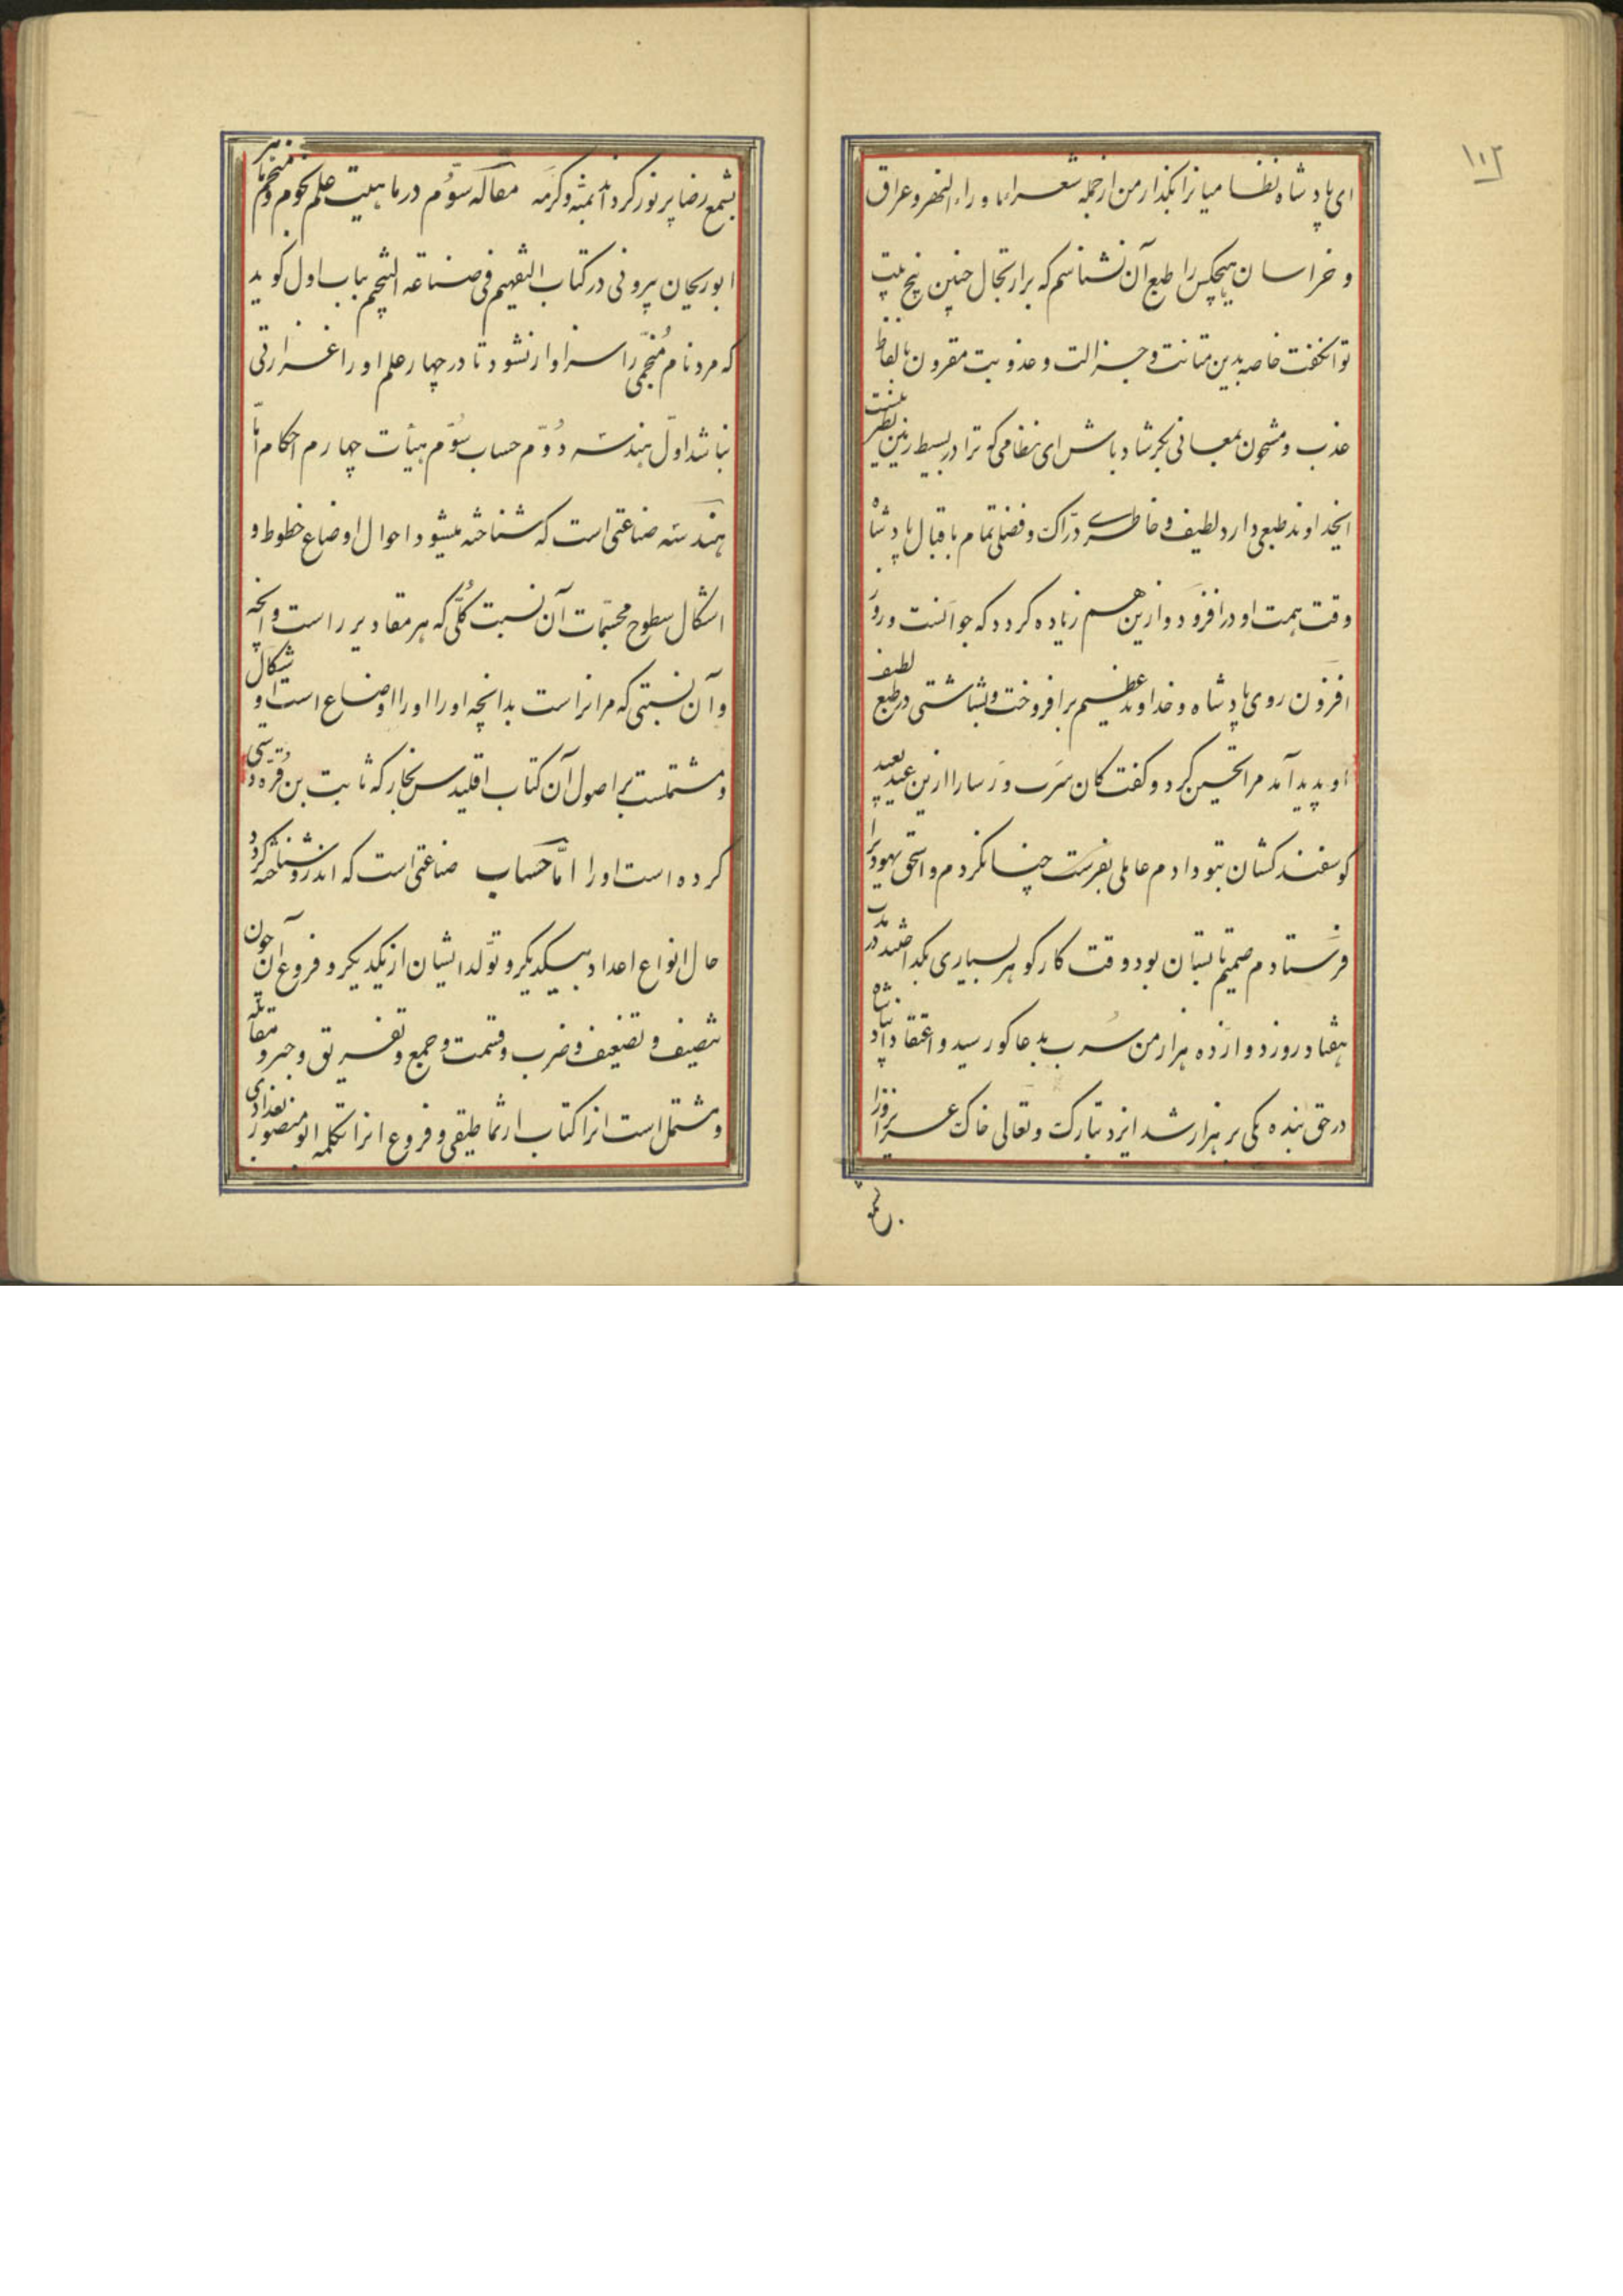 ۱۰۲
ای پادشاه نظامیانرا بگذار من از جمله شعراء ماوراء النهر و عراق
و خراسان هیچکس را طبع آن نشناسم که بر ارتجال چنین پنج بیت
تواند گفت خاصه بدین متانت و جزالت و عذوبت مقرون بالفاظ
عذب و مشحون بمعانی بکر شاد باش ای نظامی که ترا در بسیط زمین نظیر نیست
ایخداوند طبعی دارد لطیف و خاطری درّاک و فضلی تمام با قبال پادشاه
وقت همت او در افزود و ازین هم زیاده کردد که جوانست و روز
افزون روی پادشاه و خداوند عظیم برافروخت و بشاشتی در طبع لطیف
او پدید آمد مرا تحسین کرد و کفت کان سَرب و رَسا را ازین عید بعید
کوسفند کشان بتو دادم عاملی بفرست چنان کردم و اسحق یهودیرا
فرستادم صمیم تابستان بود و وقت کار کوهر بسیاری بگداختند در مدت
هفتاد روز دوازده هزار من سُرب بدعاکو رسید و اعتقاد پادشاه
در حق بنده یکی بر هزار شد ایزد تبارک و تعالی خاک عزیز او را
بشمع
بشمع رضا پر نور کرداند بمنّه و کرمَه مقالَه سوّم در ماهیت علم نجوم و منجم ماهر
ابوریحان بیرونی در کتاب التفهیم فی صناعه التنجیم بباب اول کوید
که مرد نام مُنجّمی را سزاوار نشود تا در چهار علم او را غزارتی
نباشد اوّل هندسَه دُوّم حساب سوّم هیأت چهارم احکام امّا
هندسَه صناعتی است که شناخته میشود احوال اوضاع خطوط و
اشکال سطوح مجسّمات آن نسبت کُلّی که هر مقادیر راست و انچه
و آن نسبتی که مر انراست بدانچه او را اورا اوضاع است و اشکال
و مشتملست بر اصول آن کتاب اقلیدس نجار که ثابت بن قُره درستی
کرده است او را امّا حسَاب صناعتی است که اندرو شناخته کردد
حال انواع اعداد بیکدیکر و تولّد ایشان از یکدیکر و فروع آن چون
تنصیف و تضعیف و ضرب و قسمت و جمع و تفریق و جبر و مقابله
و مشتمل است انرا کتاب ارثماطیقی و فروع انرا تکمله ابو منصور بغدادی